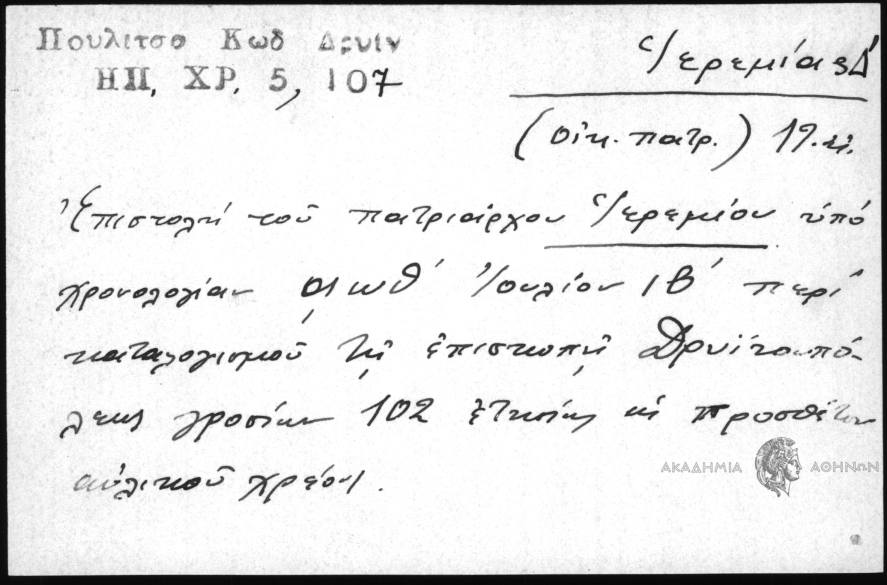 Πουλιτσα Κωδ Δρυϊν
ΗΠ. ΧΡ. 5, 107
Ἱερεμίας Δ'
(οἰκ. πατρ.) 19. αἰ.
Ἐπιστολὴ τοῦ πατριάρχου Ἱερεμίου ὑπὸ
χρονολογίαν ͵αωθ' Ἰουλίου ΙΒ' περὶ
καταλογισμοῦ τῇ ἐπισκοπῇ Δρυϊνουπό-
λεως γροσίων 102 ἐτησίως ὡς προσθέτου
αὐλικοῦ χρέους.
ΑΚΑΔΗΜΙΑ ΑΘΗΝΩΝ